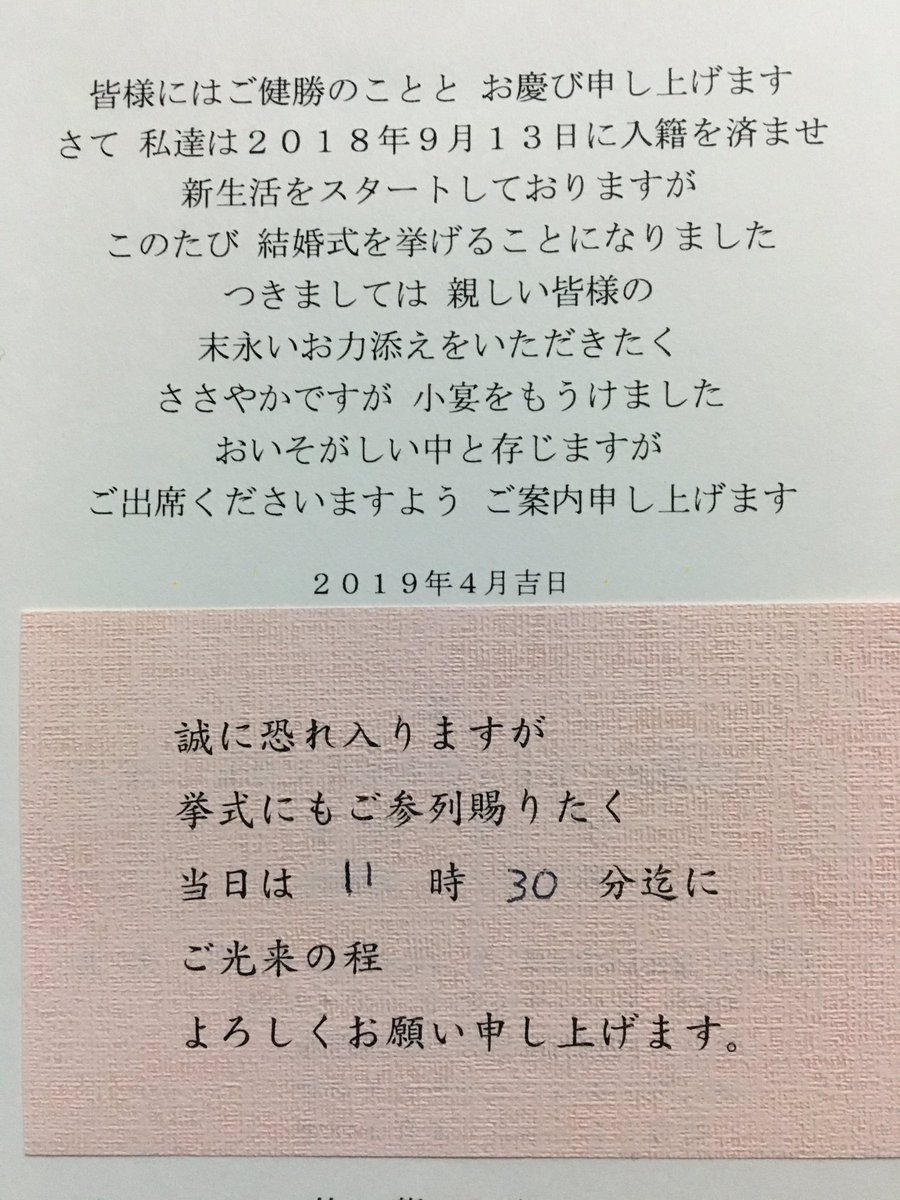 皆様にはご健勝のことと お慶び申し上げます
さて 私達は２０１８年９月１３日に入籍を済ませ
新生活をスタートしておりますが
このたび 結婚式を挙げることになりました
つきましては 親しい皆様の
末永いお力添えをいただきたく
ささやかですが 小宴をもうけました
おいそがしい中と存じますが
ご出席くださいますよう ご案内申し上げます
２０１９年４月吉日
誠に恐れ入りますが
挙式にもご参列賜りたく
当日は 11 時 30 分迄に
ご光来の程
よろしくお願い申し上げます。